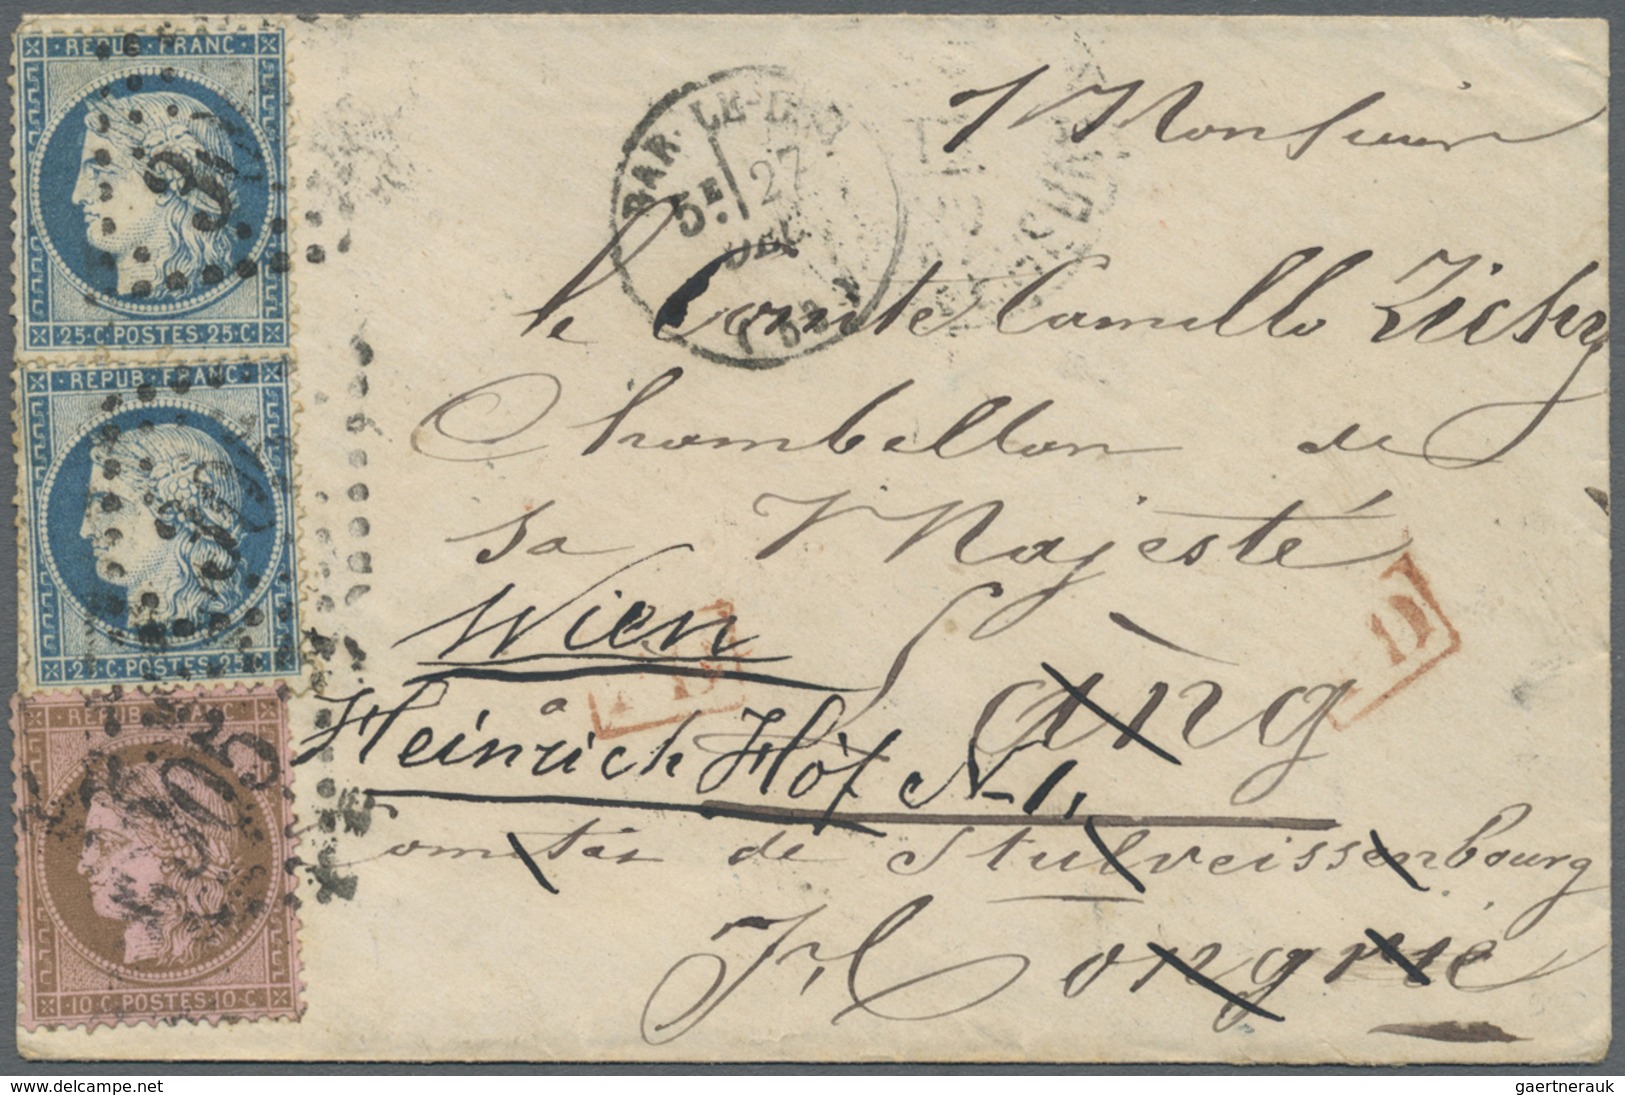 REPUB·FRANC
25·C·POSTES·25·C
REPUB·FRANC
25·C·POSTES·25·C
REPUB·FRANC
10·C·POSTES·10·C
305
BAR-LE-DUC
5E 27
DEC
Monsieur
le Comte Camille Zichy
Chambellan de
sa Majesté
Wien
à Cáng
Heinrich Hof N-1.
Comitas de Stulveissenbourg
Hongrie
PD
PD
gaertnerauk